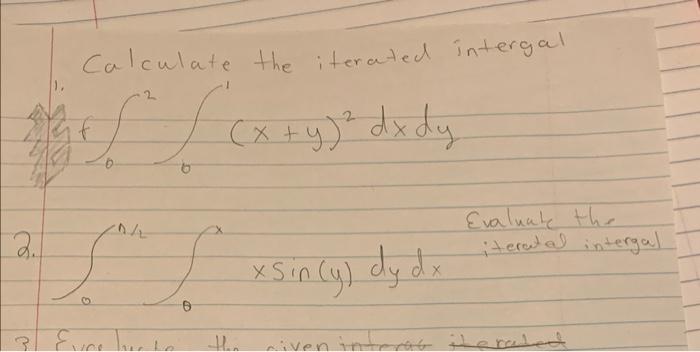 Calculate the iterated intergal
1. ∫₀² ∫₀¹ (x + y)² dx dy
2. ∫₀^π/2 ∫₀^x x sin(y) dy dx Evaluate the
iterated intergal
3 the given iterated